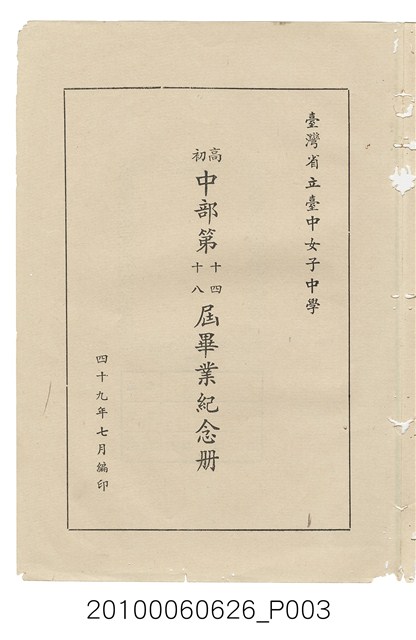 臺灣省立臺中女子中學
高初中部第十四十八屆畢業紀念册
四十九年七月編印
20100060626_P003